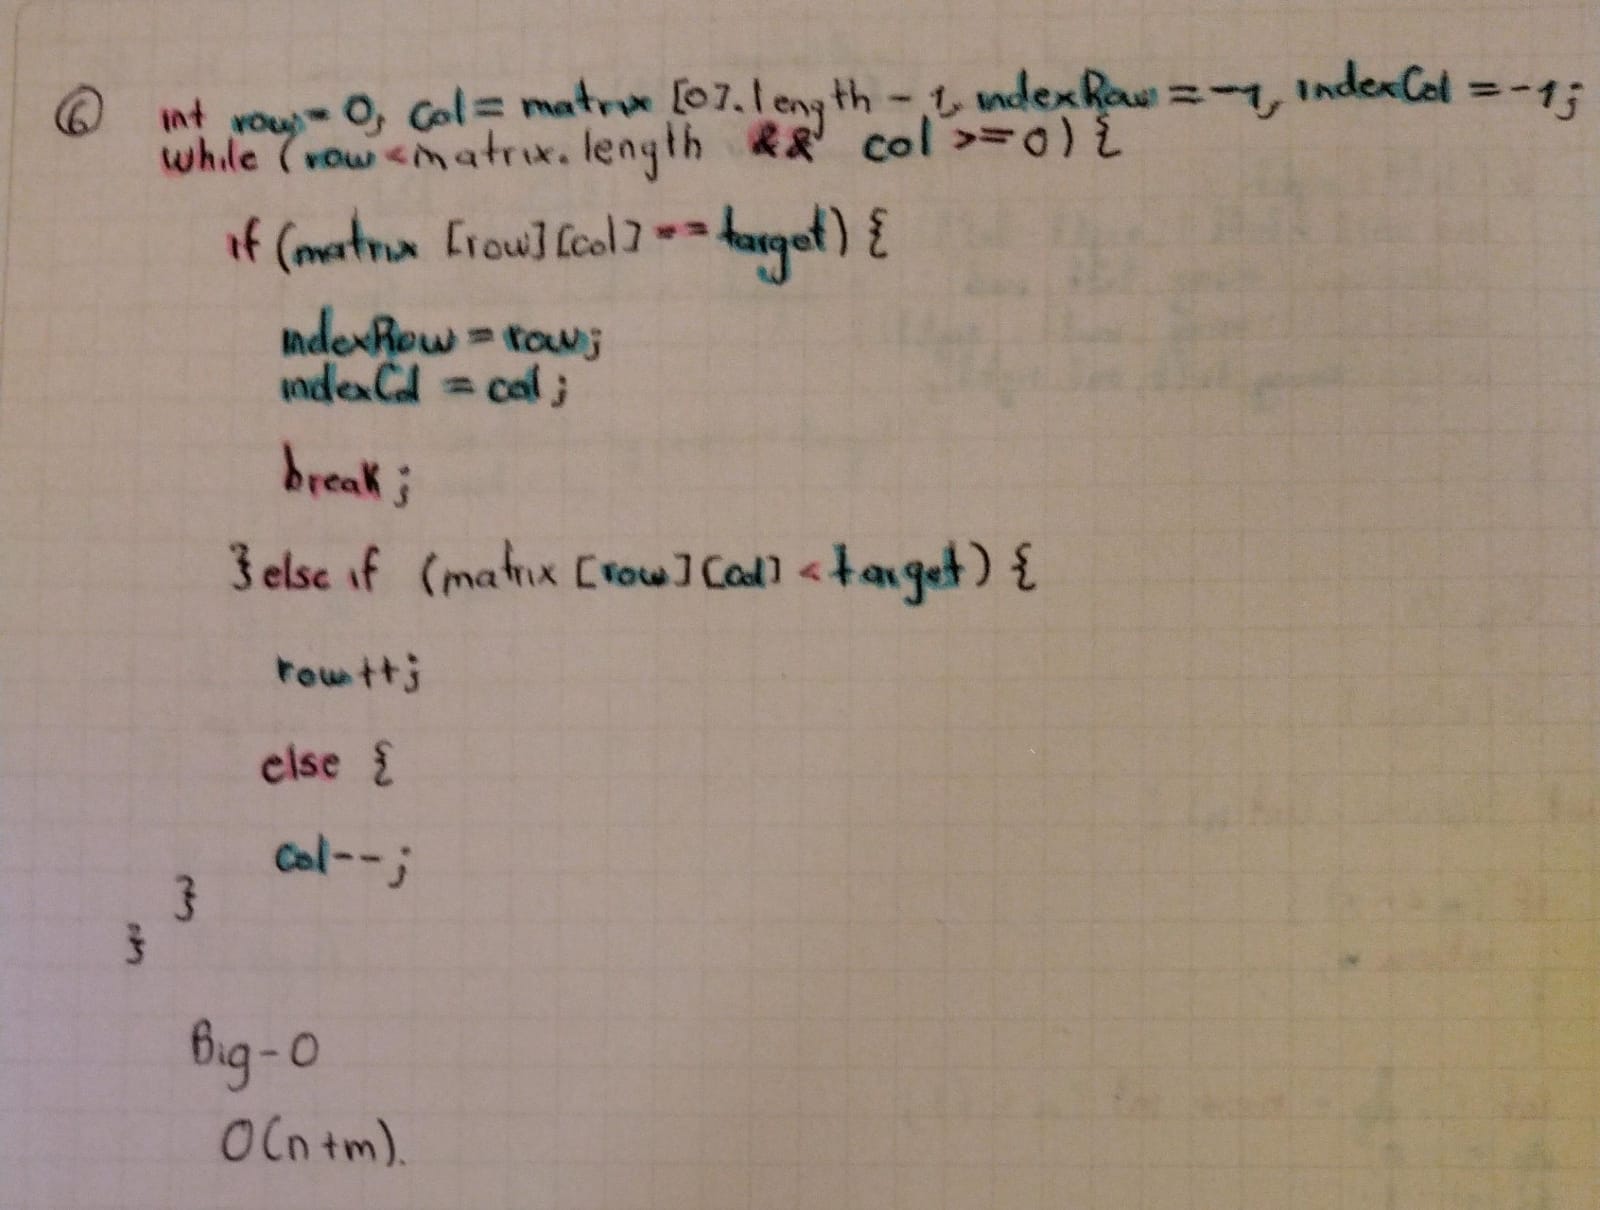 6 int row = 0, col = matrix [0].length - 1, indexRow = -1, indexCol = -1;
while (row < matrix.length && col >= 0) {
if (matrix [row][col] == target) {
indexRow = row;
indexCol = col;
break;
} else if (matrix [row][col] < target) {
row++;
else {
col--;
}
}
Big-O
O(n+m).